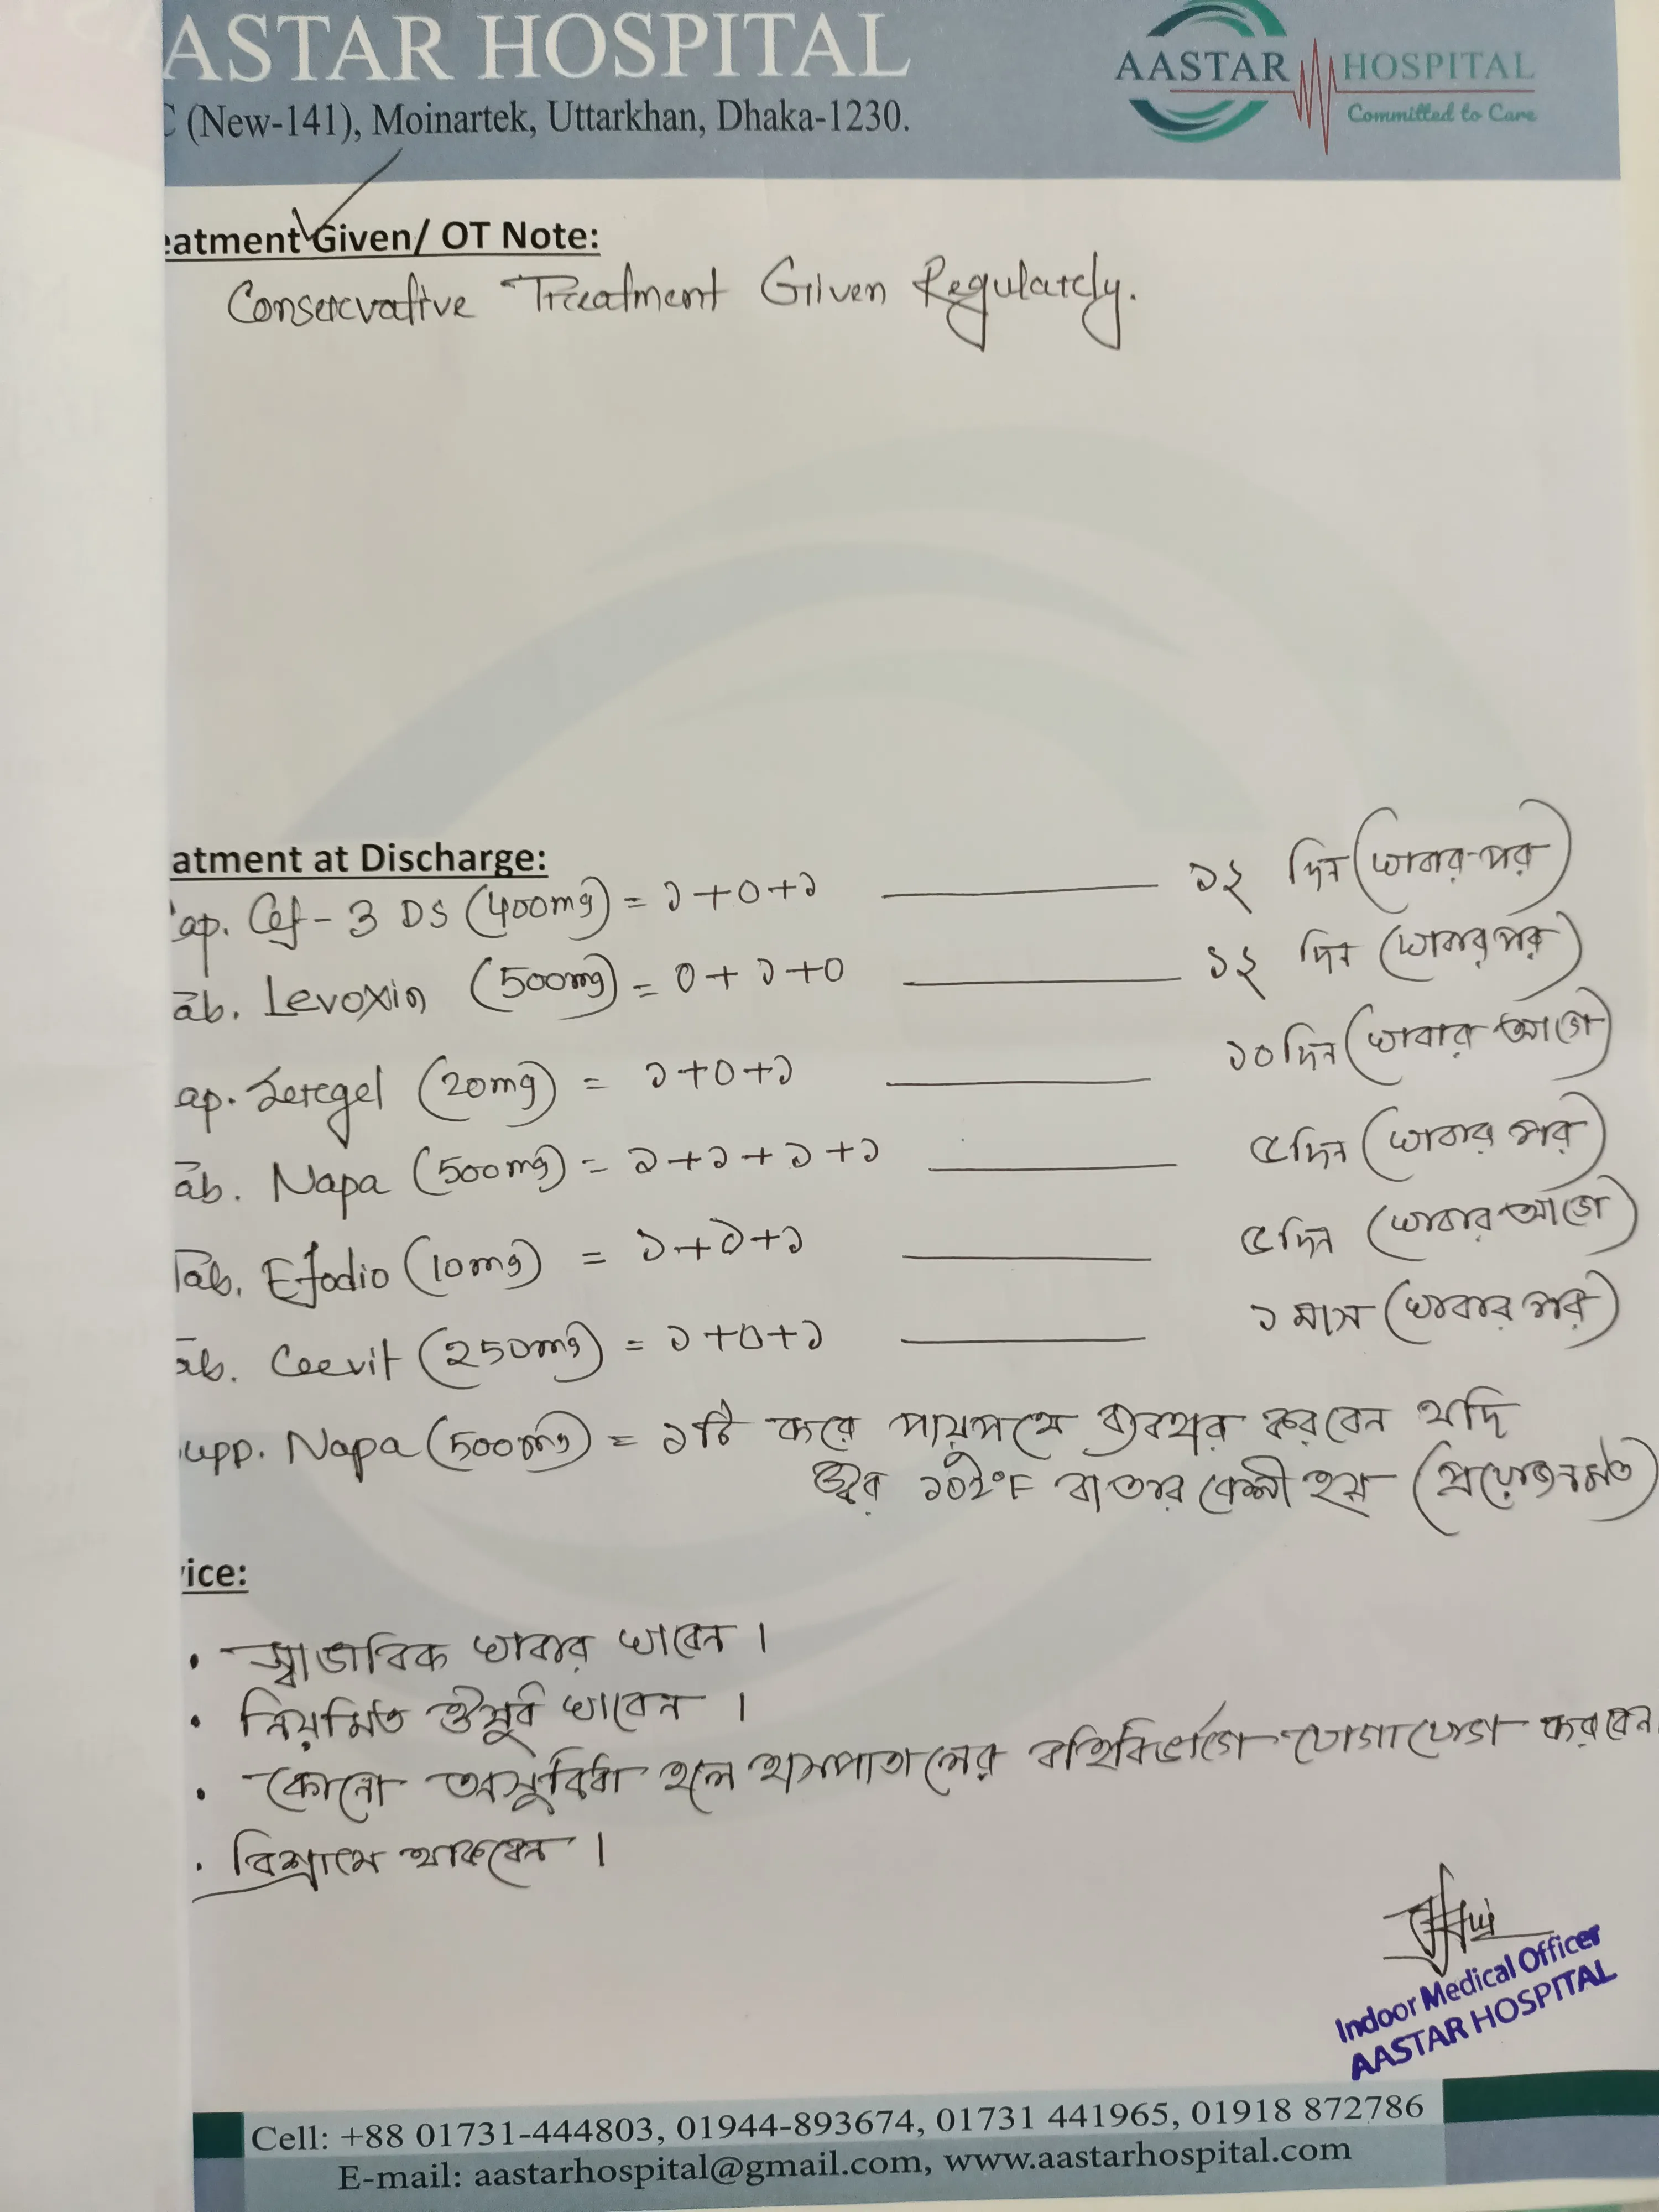 ASTAR HOSPITAL
C (New-141), Moinartek, Uttarkhan, Dhaka-1230.
AASTAR HOSPITAL
Committed to Care
eatment Given/ OT Note:
Conservative Treatment Given Regularly.
atment at Discharge:
ap. Cef-3 DS (400mg) = ১+০+১ ১২ দিন (খাবার পর)
ab. Levoxin (500mg) = ০+১+০ ১২ দিন (খাবার পর)
ap. Sergel (20mg) = ১+০+১ ১০ দিন (খাবার আগে)
ab. Napa (500mg) = ১+১+১+১ ৫ দিন (খাবার পর)
Tab. Efodio (10mg) = ১+১+১ ৫ দিন (খাবার আগে)
ab. Ceevit (250mg) = ১+০+১ ১ মাস (খাবার পর)
upp. Napa (500mg) = ১টি করে পায়ুপথে ব্যবহার করবেন যদি
জ্বর ১০২°F বা তার বেশী হয় (প্রয়োজনমত)
ice:
• স্বাভাবিক খাবার খাবেন।
• নিয়মিত ঔষুধ খাবেন।
• কোনো অসুবিধা হলে হাসপাতালের বহির্বিভাগে যোগাযোগ করবেন
• বিশ্রামে থাকবেন।
Indoor Medical Officer
AASTAR HOSPITAL
Cell: +88 01731-444803, 01944-893674, 01731 441965, 01918 872786
E-mail: aastarhospital@gmail.com, www.aastarhospital.com